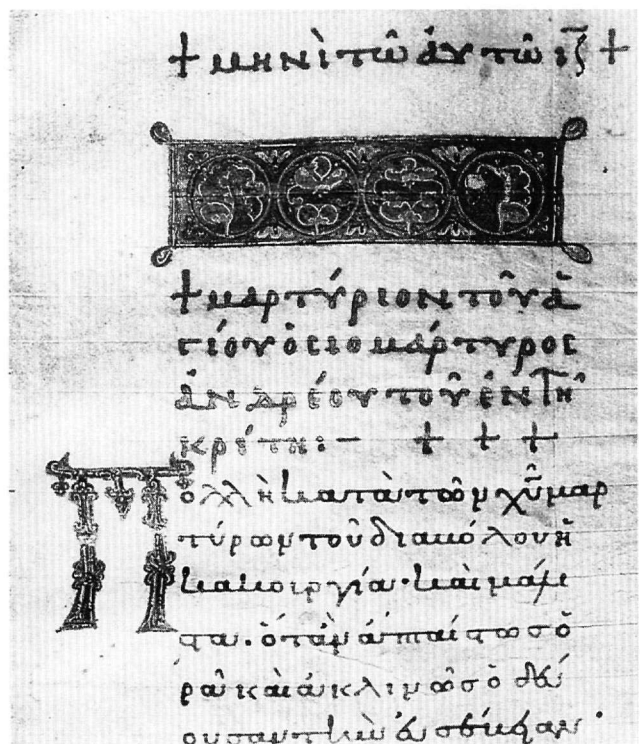 + μηνὶ τῶ ἀυτῶ ιζ +
+ μαρτύριον τοῦ ἁ
γίου ὁσιομάρτυρος
ἀνδρέου τοῦ ἐν τῆ
κρίτη:— + + +
Πολλὴ κατὰ τῶν χῦ μαρ
τύρων τοῦ διαβόλου ἡ
κακουργία· καὶ μάλι
στα· ὅταν ἀπταίστωσ ὁ
ρᾶ καὶ ἀκλινῶσ ὁδεύ
ουσαν τὴν εὐσέβειαν·